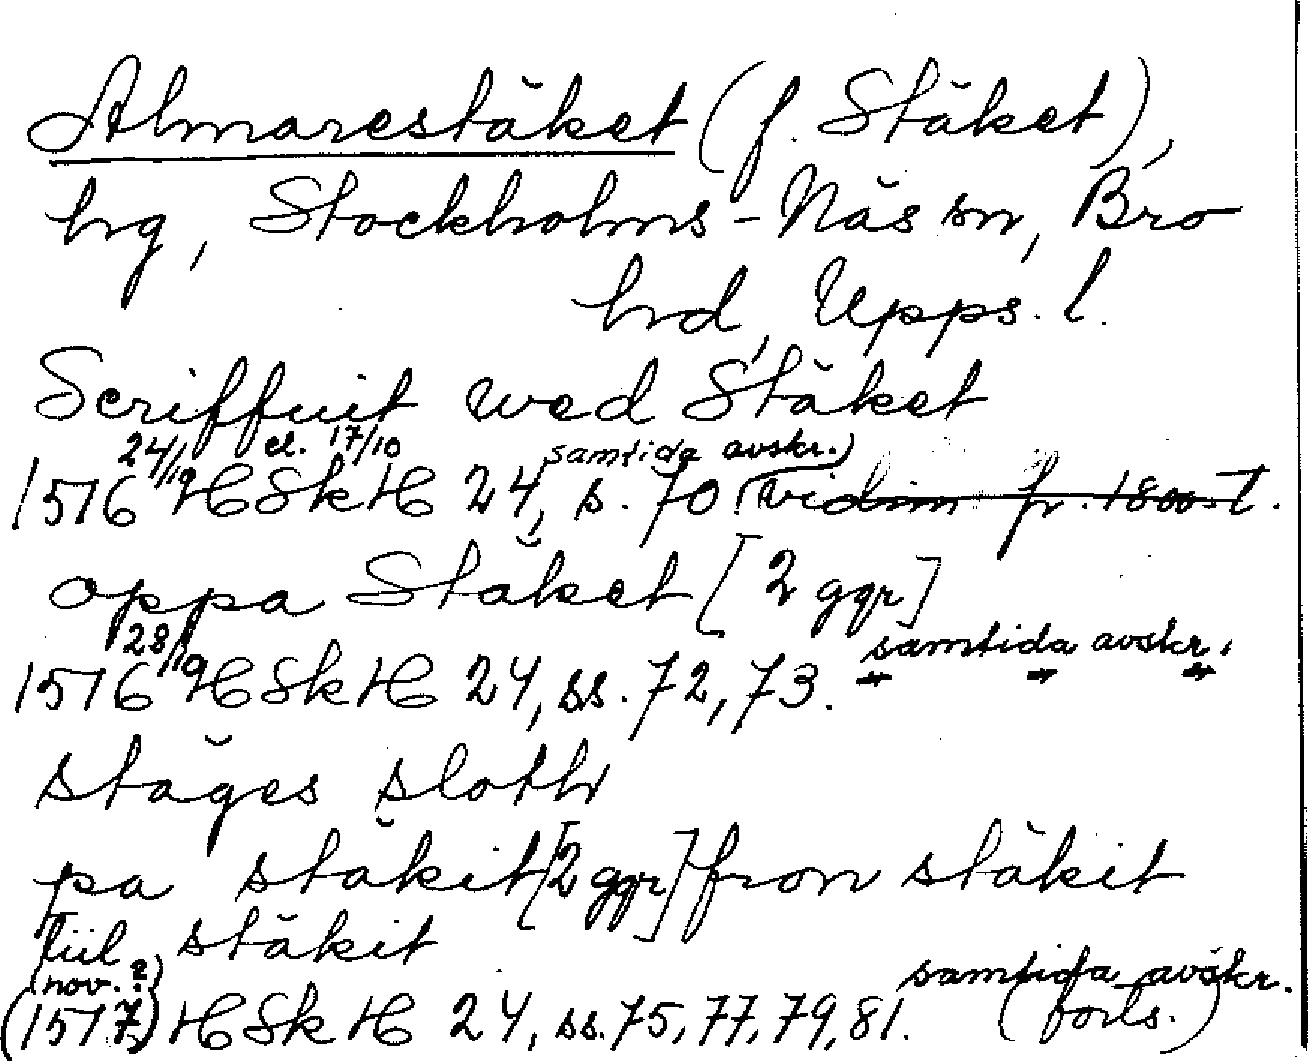 Almarestäket (f. Stäket),
hg, Stockholms-Näs sn, Bro
hd, Upps. l.
Scriffuit wed Stäket
24/9 el. 17/10 samtida avskr.)
1516 HSkH 24, s. 70 (vidim fr. 1800-t.
oppa Stäket [2 ggr]
28/9 samtida avskr.
1516 HSkH 24, ss. 72, 73.
stäges sloth
pa stäkit [2 ggr] fron stäkit
tiil stäkit
(nov.?) samtida avskr.
(1517) HSkH 24, ss. 75, 77, 79, 81. (forts.)